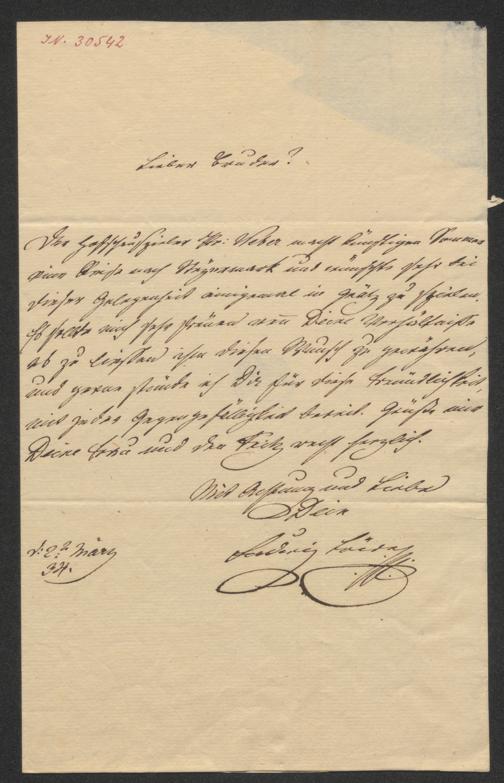 IN. 30542
Lieber Bruder!
Der Hofschauspieler Hr: Weber macht künftigen Sommer
eine Reise nach Steyermark und wünschte sehr bei
dieser Gelegenheit einigemal in Grätz zu spielen.
Es sollte mich sehr freuen wenn Deine Verhältniße
es zu liessen ihm diesen Wunsch zu gewähren,
und gerne stünde ich Dir für diese Freundlichkeit,
mit jeder Gegengefälligkeit bereit. Grüße mir
Deine Frau und den Fritz recht herzlich.
Mit Achtung und Liebe
Dein
Ludwig Löwe
d: 2t März
34.